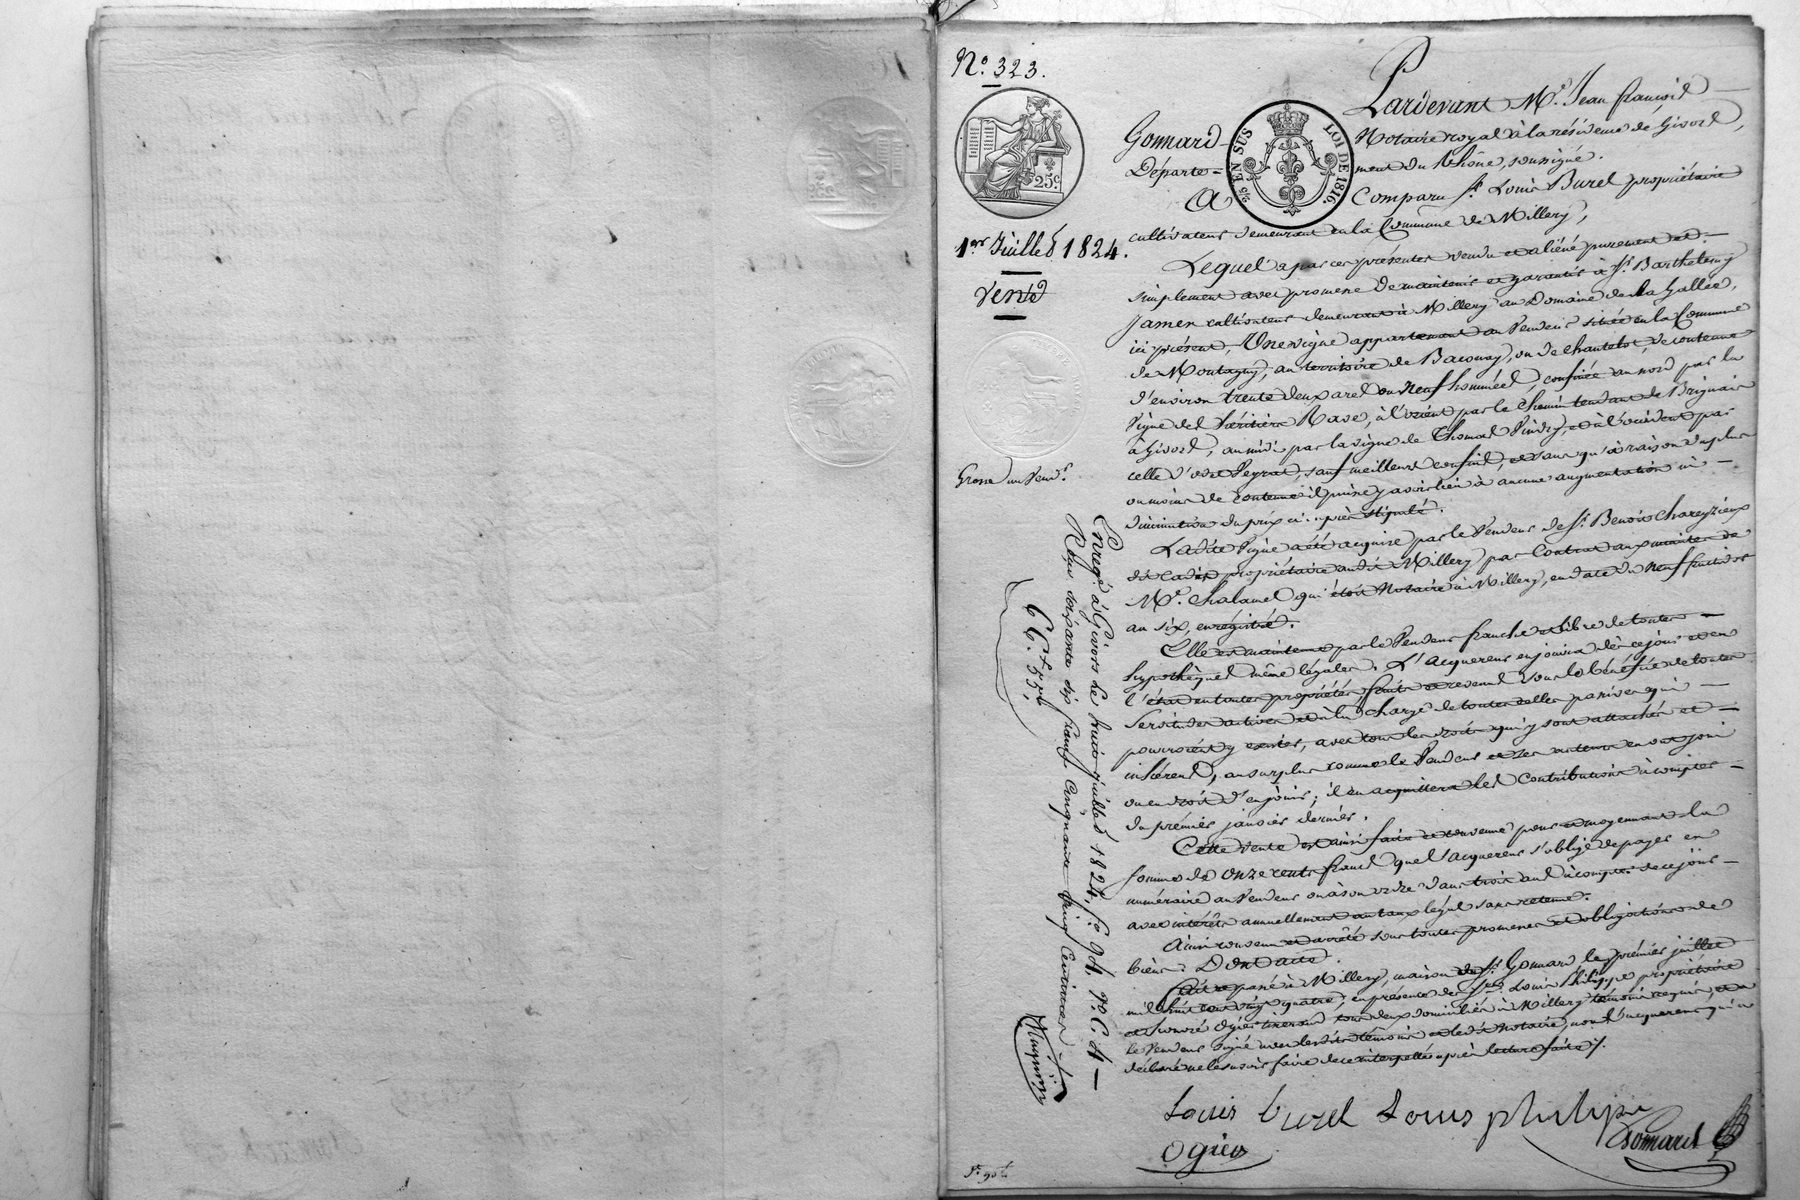 N.° 323.
Pardevant M.e Jean françois
Gonnard Notaire royal à la résidence de Givors,
Départe= ment du Rhône, soussigné.
2/10 EN SUS LOI DE 1816.
25c.
A Comparu Sr. Louis Burel propriétaire
cultivateur demeurant en la Commune de Millery,
1.er Juillet 1824.
Vente
Lequel a par ces présentes vendu et aliéné purement et
simplement avec promesse de maintenir et garantir à Sr. Barthelemy
Jamen cultivateur demeurant à Millery au Domaine de la Gallée,
ici présent, Une vigne appartenant au Vendeur située en la Commune
de Montagny, au territoire de Baconay, ou de Chantelot, de contenue
d'environ trente deux ares ou neuf hommées, confinée au nord par la
Vigne des héritiers Rave, à l'orient par le Chemin tendant de Brignais
à Givors, au midi par la vigne de Thomas et à l'occident par
celle d' Peyrat, sauf meilleurs confins, et sans qu'à raison du plus
ou moins de contenue il puisse y avoir lieu à aucune augmentation ni
diminution du prix ci-après stipulé.
Grosse au Vend.r
Ladite Vigne a été acquise par le Vendeur de Sr. Benoit Chareyzieux
dit Cadet propriétaire audit Millery par Contrat aux minutes de
M.e Chalamel qui étoit Notaire à Millery, en date du neuf fructidor
an six, enregistré.
Elle est maintenue par le Vendeur franche et libre de toutes
hypothèques même légales. L'acquereur en jouira dès ce jour et en
l'état en toutes propriétés fruits et revenus sous le bénéfice de toutes
Servitudes actives et à la charge de toutes celles passives qui
pourroient y exister, avec tous les droits qui y sont attachés et
inhérents, au surplus comme le Vendeur et ses auteurs en ont joui
ou eu droit d'en jouir; il en acquittera les Contributions à compter
du premier janvier dernier.
Cette vente est ainsi faite et convenue pour et moyennant la
somme de onze cents francs que l'acquereur s'oblige de payer en
numéraire au Vendeur ou à son ordre dans trois ans à compter de ce jour
avec intérêts annuellement au taux légal sans retenue.
Ainsi convenu et arrêté sous toutes promesses et obligations de
biens. Dont acte.
Fait et passé à Millery, maison de Sr. Gonnard le premier juillet
mil huit cent vingt quatre, en présence de Srs. Louis Philippe propriétaire
et honoré Ogier tous deux domiciliés à Millery témoins requis, et a
le Vendeur signé avec lesdits témoins et ledit Notaire, non l'acquereur qui a
déclaré ne le savoir faire de ce interpellé après lecture faite.
Enreg.é à Givors le huit juillet 1824, f.° 94, v.° C. 4
Reçu soixante six francs Cinquante Cinq Centimes
66.f 55.c
Louis burel Louis philipe
Ogier Gonnard